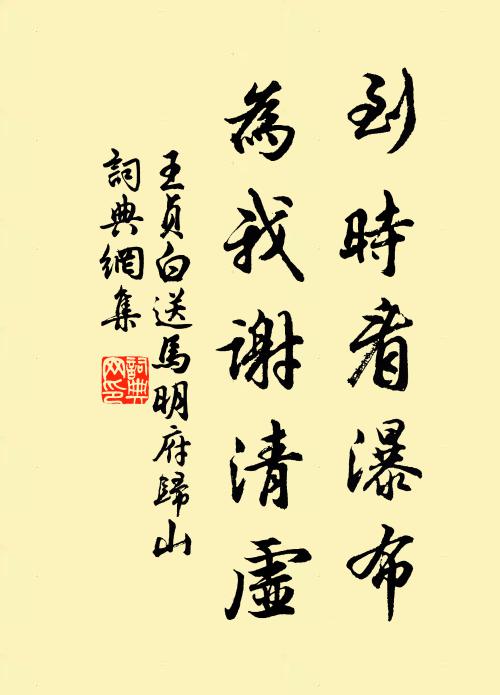 到時看瀑布
為我謝清虛
王貞白送馬明府歸山
詞典網集
詞典网印